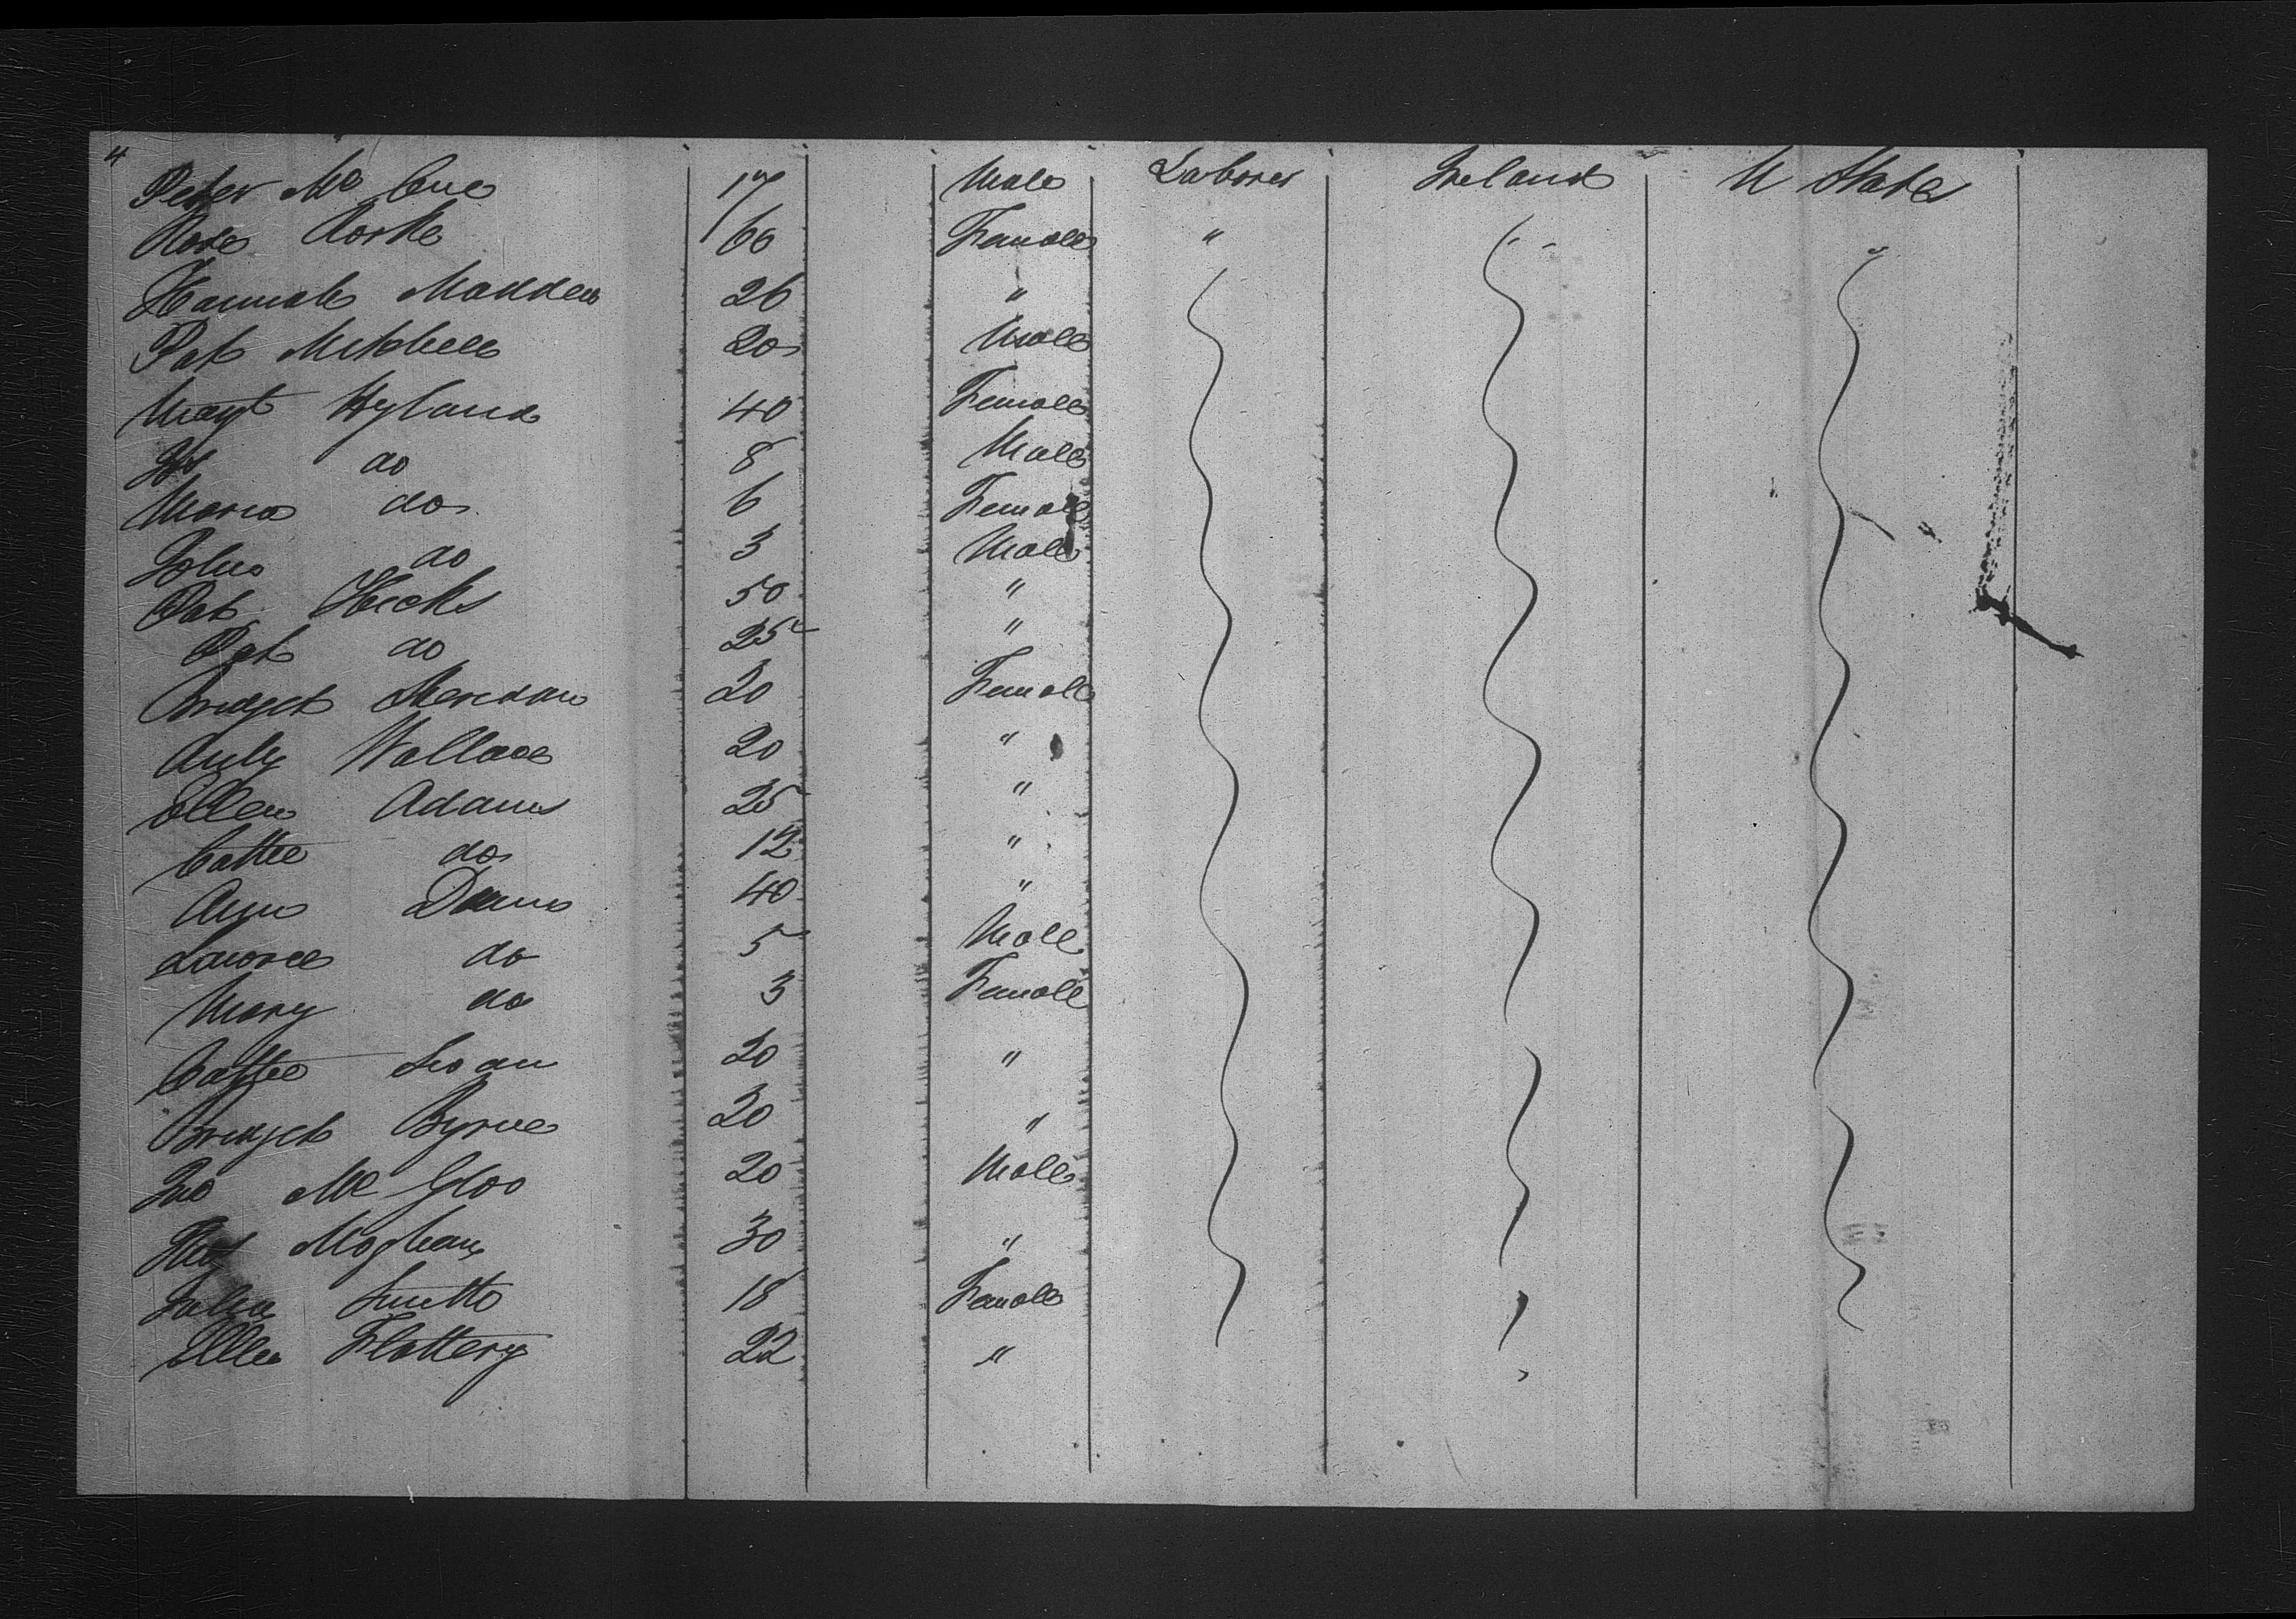 4
Peter Mc Cue 17 Male Laborer Ireland U States
Rose Rorke 60 Female " " "
Hannah Madden 26 "
Pat Mitchell 20 Male
Margt Hyland 40 Female
do 8 Male
Maria do 6 Female
John do 3 Male
Pat Hicks 50 "
Pat do 25 "
Bridget Sheridan 20 Female
Wallace 20 "
Ellen Adams 25 "
Cathe do 12 "
Ann 40 "
Lawrce do 5 Male
Mary do 3 Female
Cathe 20 "
Bridget Byrne 20 "
Jno Mc Gloo 20 Male
Moghan 30 "
Julia Smith 18 Female
Ellen Flattery 22 "